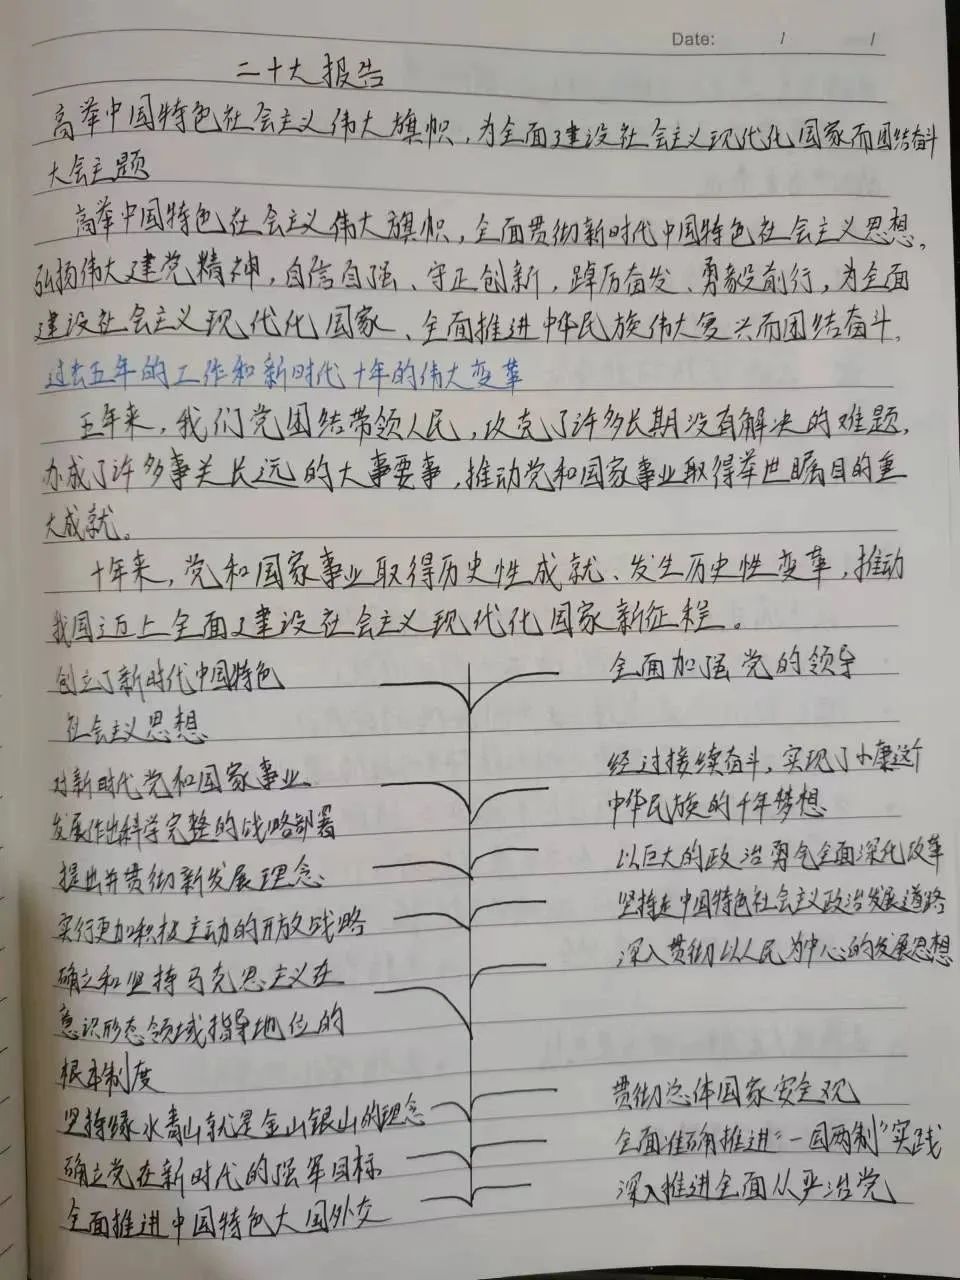 Date: / /
二十大报告
高举中国特色社会主义伟大旗帜,为全面建设社会主义现代化国家而团结奋斗
大会主题
高举中国特色社会主义伟大旗帜,全面贯彻新时代中国特色社会主义思想,
弘扬伟大建党精神,自信自强、守正创新,踔厉奋发、勇毅前行,为全面
建设社会主义现代化国家、全面推进中华民族伟大复兴而团结奋斗。
过去五年的工作和新时代十年的伟大变革
五年来,我们党团结带领人民,攻克了许多长期没有解决的难题,
办成了许多事关长远的大事要事,推动党和国家事业取得举世瞩目的重
大成就。
十年来,党和国家事业取得历史性成就、发生历史性变革,推动
我国迈上全面建设社会主义现代化国家新征程。
创立了新时代中国特色
社会主义思想
全面加强党的领导
对新时代党和国家事业
发展作出科学完整的战略部署
经过接续奋斗,实现了小康这个
中华民族的千年梦想
提出并贯彻新发展理念
以巨大的政治勇气全面深化改革
实行更加积极主动的开放战略
坚持走中国特色社会主义政治发展道路
确立和坚持马克思主义在
意识形态领域指导地位的
根本制度
深入贯彻以人民为中心的发展思想
坚持绿水青山就是金山银山的理念
贯彻总体国家安全观
确立党在新时代的强军目标
全面准确推进“一国两制”实践
全面推进中国特色大国外交
深入推进全面从严治党